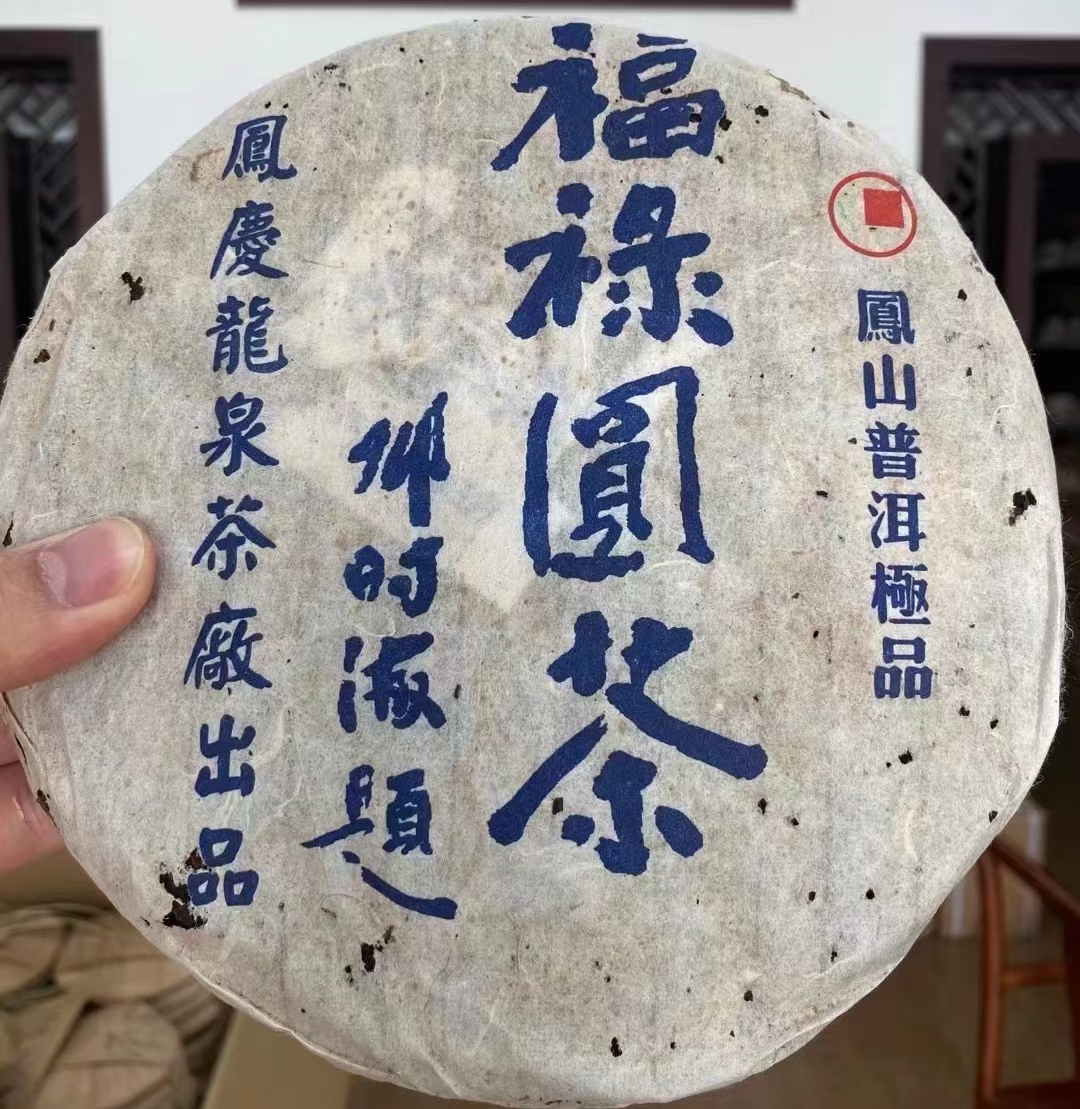 鳳山普洱極品
福祿圓茶
時海題
鳳慶龍泉茶廠出品